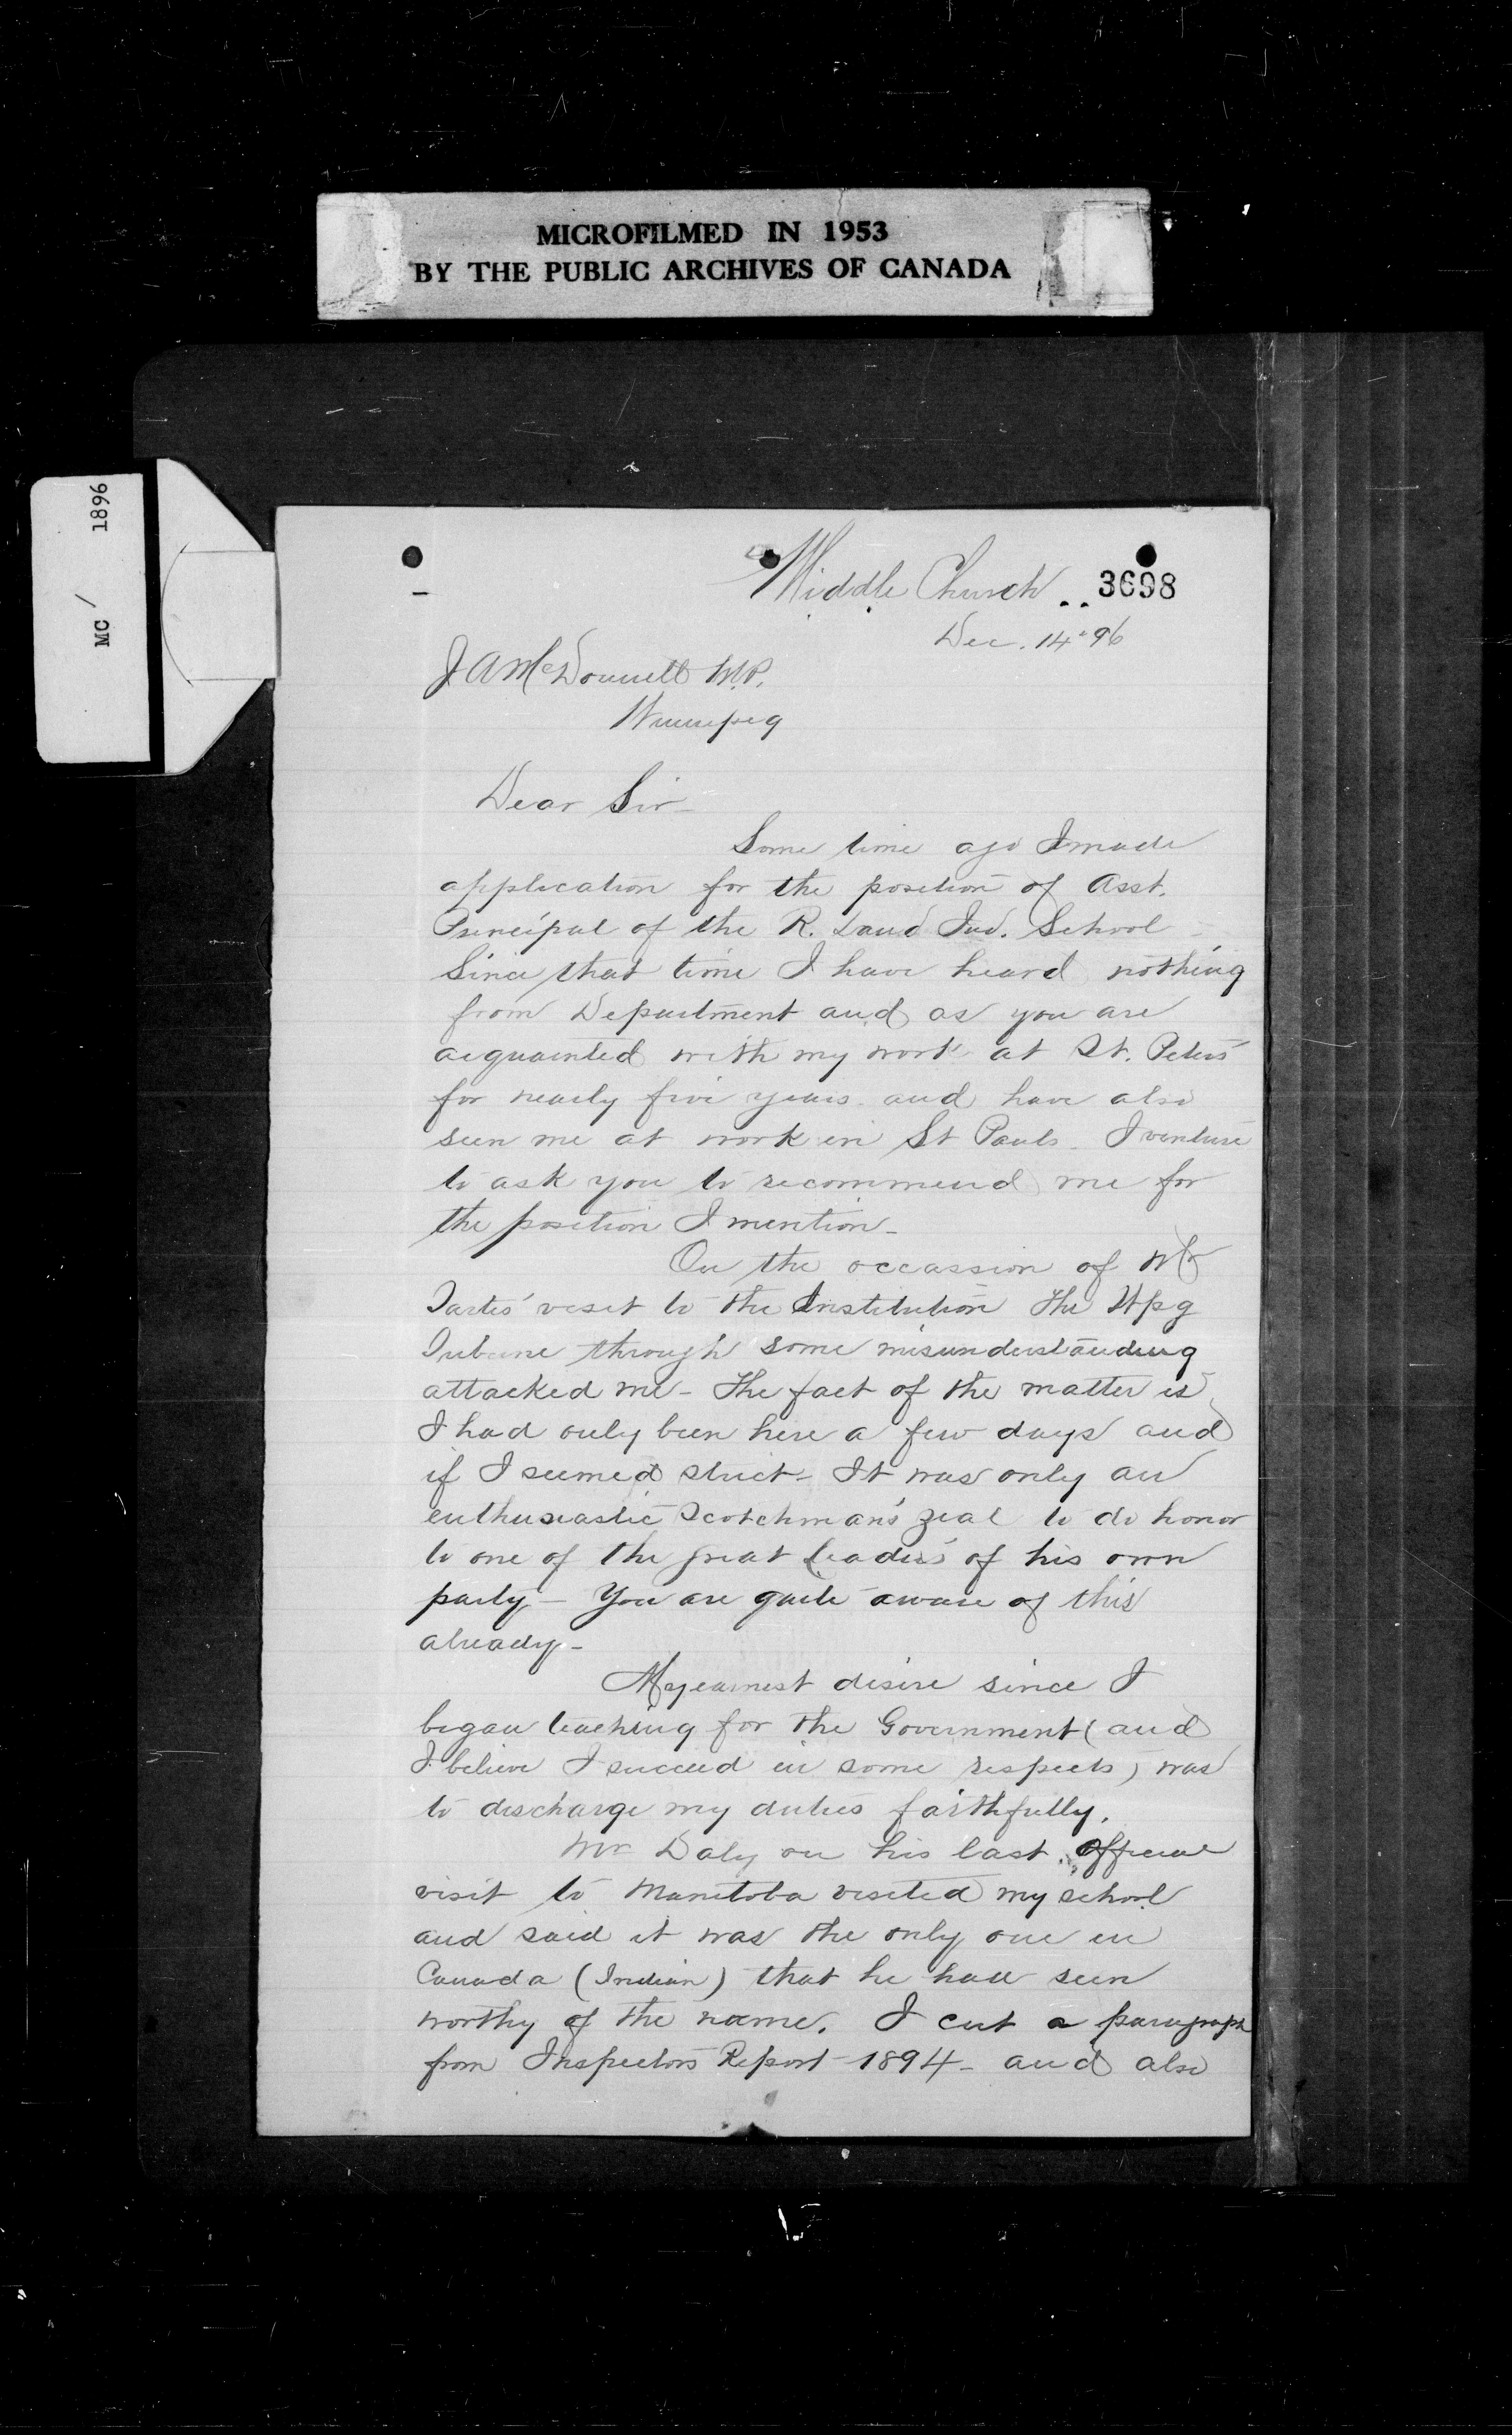 MICROFILMED IN 1953
BY THE PUBLIC ARCHIVES OF CANADA
MC / 1896
Middle Church
3698
Dec. 14" 96
J A McDonnell M.P.
Winnipeg
Dear Sir -
Some time ago I made
application for the position of Asst.
Principal of the R. Land Ind. School -
Since that time I have heard nothing
from Department and as you are
acquainted with my work at St. Peters'
for nearly five years and have also
seen me at work in St Pauls - I venture
to ask you to recommend me for
the position I mention -
On the occassion of Mr
Tartes' visit to the Institution the Wpg
Tribune through some misunderstanding
attacked me - The fact of the matter is
I had only been here a few days and
if I seemed strict - It was only an
enthusiastic Scotchman's zeal to do honor
to one of the great leaders of his own
party - You are quite aware of this
already -
My earnest desire since I
began teaching for the Government (and
I believe I succeed in some respects) was
to discharge my duties faithfully.
Mr Daly on his last official
visit to Manitoba visited my school
and said it was the only one in
Canada (Indian) that he had seen
worthy of the name. I cut a paragraph
from Inspectors Report 1894 - and also